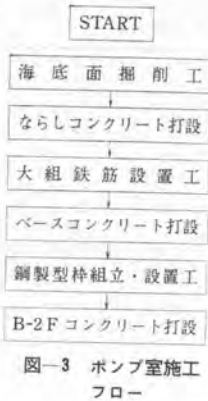 START
海底面掘削工
ならしコンクリート打設
大組鉄筋設置工
ベースコンクリート打設
鋼製型枠組立・設置工
B-2Fコンクリート打設
図―3 ポンプ室施工
フロー